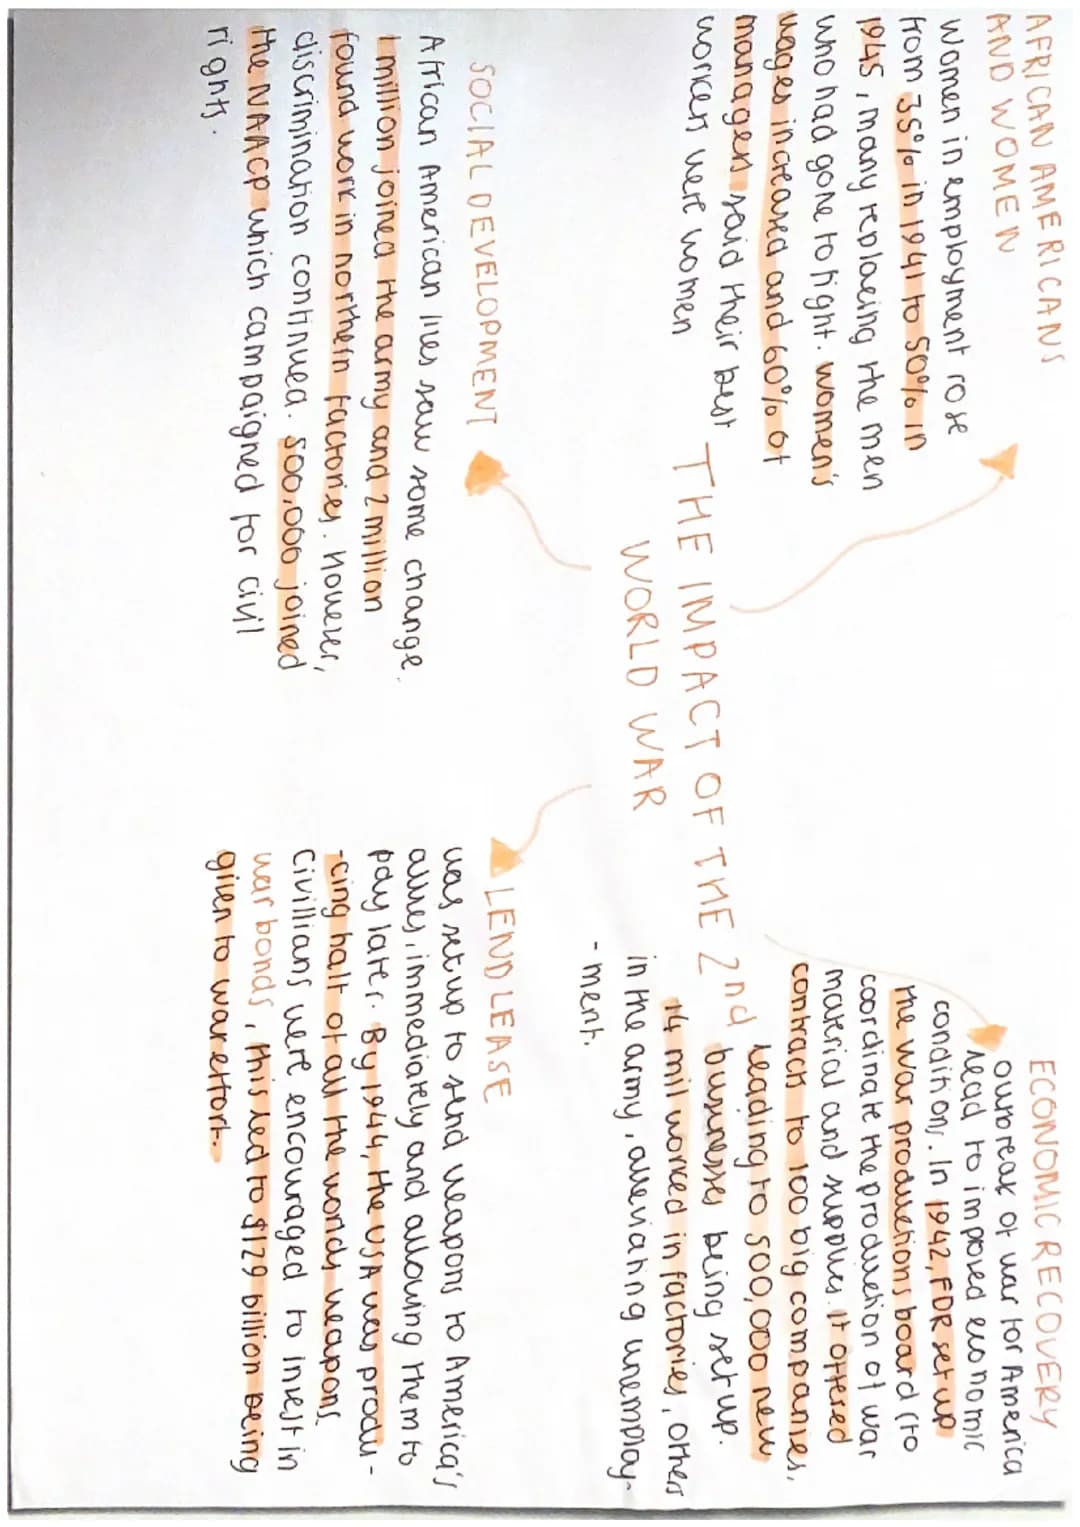 AFRICAN AMERICANS
AND WOMEN
women in employment rose
from 35% in 1941 to 50% in
1945, many replacing the men
who had gone to fight. women's
wages increased and 60% of
managers said their best
workers were women
THE IMPACT OF THE 2nd
WORLD WAR
ECONOMIC RECOVERY
outbreak of war for America
lead to improved economic
conditions. In 1942, FDR set up
the war productions board (to
coordinate the production of war
material and supplies. It offered
contracts to 100 big companies,
leading to 500,000 new
businesses being set up.
14 mil worked in factories, others
in the army, alleviating unemploy-
- ment.
SOCIAL DEVELOPMENT
African American lives saw some change.
1 million joined the army and 2 million
found work in northern factories. However,
discrimination continued. 500,000 joined
the NAACP which campaigned for civil
rights.
LEND LEASE
was set up to send weapons to America's
allies, immediately and allowing them to
pay later. By 1944, the USA was produ-
-cing half of all the worlds weapons.
Civillians were encouraged to invest in
war bonds, this led to $129 billion being
given to war effort.